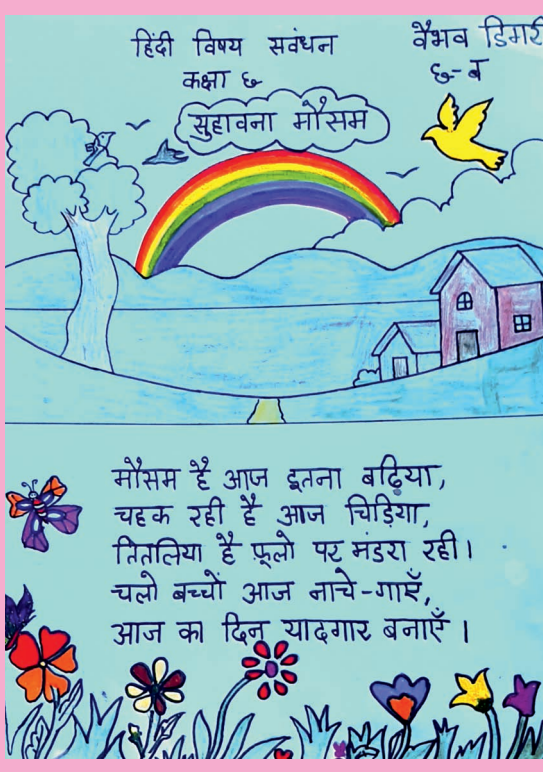 हिंदी विषय सवंधन
कक्षा ६
वैभव डिमरी
६-ब
सुहावना मौसम
मौसम है आज इतना बढ़िया,
चहक रही है आज चिड़िया,
तितलिया है फूलो पर मंडरा रही।
चलो बच्चों आज नाचे-गाएँ,
आज का दिन यादगार बनाएँ।